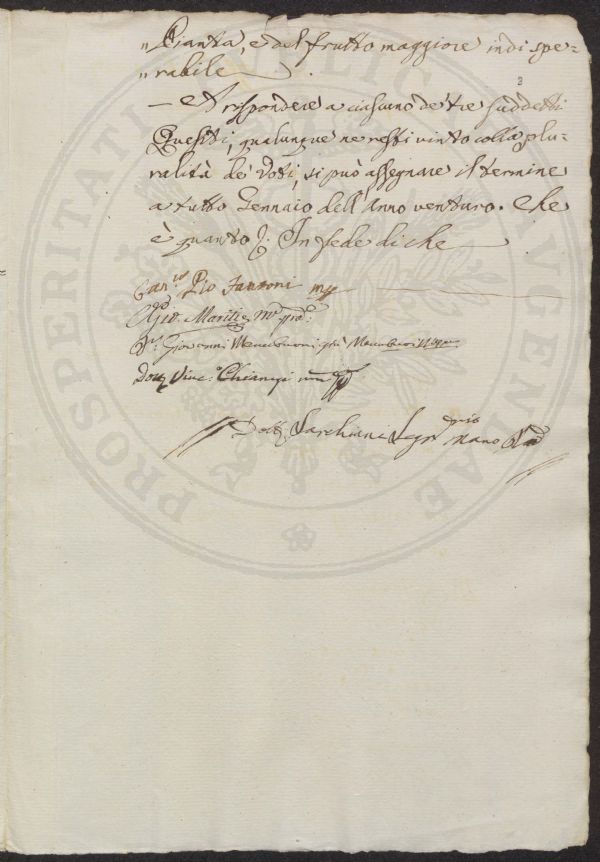 „Pianta, e del frutto maggiore indi spe-
„rabile
— A rispondere a ciascuno de' tre suddetti
Quesiti, qualunque ne resti vinto colla plu-
ralità de' Voti, si può assegnare il termine
a tutto Gennaio dell'Anno venturo. Che
è quanto &. In fede di che
Can.co Pio Fantoni mpp
Mariti
Giovanni
Dott. Vinc.o Chiarugi
Dott. Sarchiani Segr.rio mano
PROSPERITATI PUBLICAE AUGENDAE